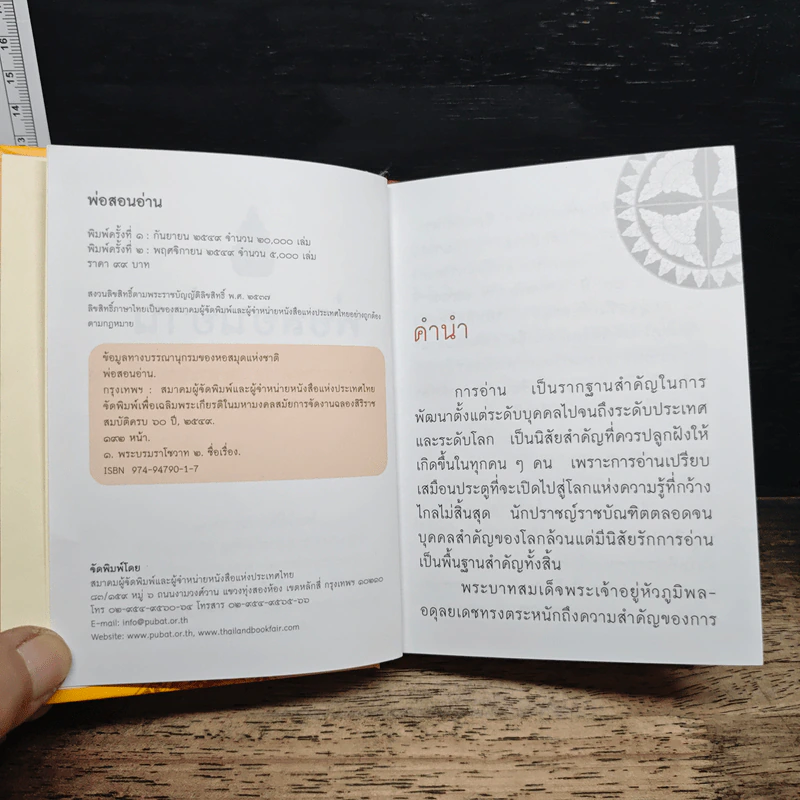 16
15
14
13
พ่อสอนอ่าน
พิมพ์ครั้งที่ ๑ : กันยายน ๒๕๔๙ จำนวน ๒๐,๐๐๐ เล่ม
พิมพ์ครั้งที่ ๒ : พฤศจิกายน ๒๕๔๙ จำนวน ๕,๐๐๐ เล่ม
ราคา ๙๙ บาท
สงวนลิขสิทธิ์ตามพระราชบัญญัติลิขสิทธิ์ พ.ศ. ๒๕๓๗
ลิขสิทธิ์ภาษาไทยเป็นของสมาคมผู้จัดพิมพ์และผู้จำหน่ายหนังสือแห่งประเทศไทยอย่างถูกต้อง
ตามกฎหมาย
ข้อมูลทางบรรณานุกรมของหอสมุดแห่งชาติ
พ่อสอนอ่าน.
กรุงเทพฯ : สมาคมผู้จัดพิมพ์และผู้จำหน่ายหนังสือแห่งประเทศไทย
จัดพิมพ์เพื่อเฉลิมพระเกียรติในมหามงคลสมัยการจัดงานฉลองสิริราช
สมบัติครบ ๖๐ ปี, ๒๕๔๙.
๑๙๒ หน้า.
๑. พระบรมราโชวาท ๒. ชื่อเรื่อง.
ISBN 974-94790-1-7
จัดพิมพ์โดย
สมาคมผู้จัดพิมพ์และผู้จำหน่ายหนังสือแห่งประเทศไทย
๘๓/๑๕๙ หมู่ ๖ ถนนงามวงศ์วาน แขวงทุ่งสองห้อง เขตหลักสี่ กรุงเทพฯ ๑๐๒๑๐
โทร ๐๒-๙๕๔-๙๕๖๐-๖๔ โทรสาร ๐๒-๙๕๔-๙๕๖๕-๖๖
E-mail: info@pubat.or.th
Website: www.pubat.or.th, www.thailandbookfair.com
คำนำ
การอ่าน เป็นรากฐานสำคัญในการ
พัฒนาตั้งแต่ระดับบุคคลไปจนถึงระดับประเทศ
และระดับโลก เป็นนิสัยสำคัญที่ควรปลูกฝังให้
เกิดขึ้นในทุกคน ๆ คน เพราะการอ่านเปรียบ
เสมือนประตูที่จะเปิดไปสู่โลกแห่งความรู้ที่กว้าง
ไกลไม่สิ้นสุด นักปราชญ์ราชบัณฑิตตลอดจน
บุคคลสำคัญของโลกล้วนแต่มีนิสัยรักการอ่าน
เป็นพื้นฐานสำคัญทั้งสิ้น
พระบาทสมเด็จพระเจ้าอยู่หัวภูมิพล-
อดุลยเดชทรงตระหนักถึงความสำคัญของการ